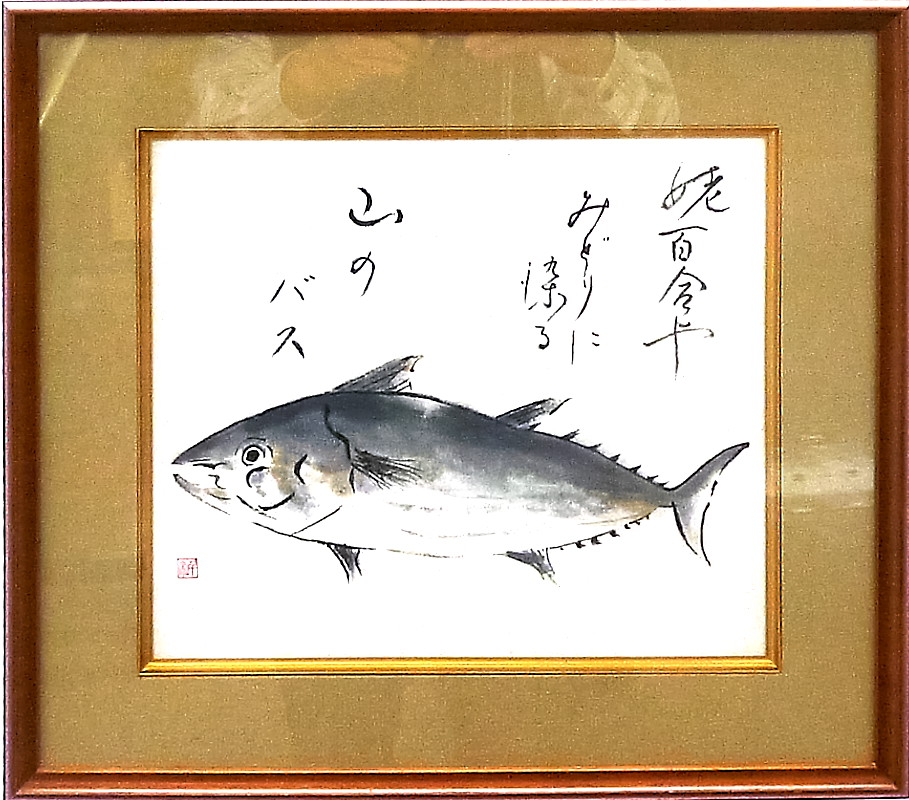 姥百合や
みどりに
染る
山の
バス